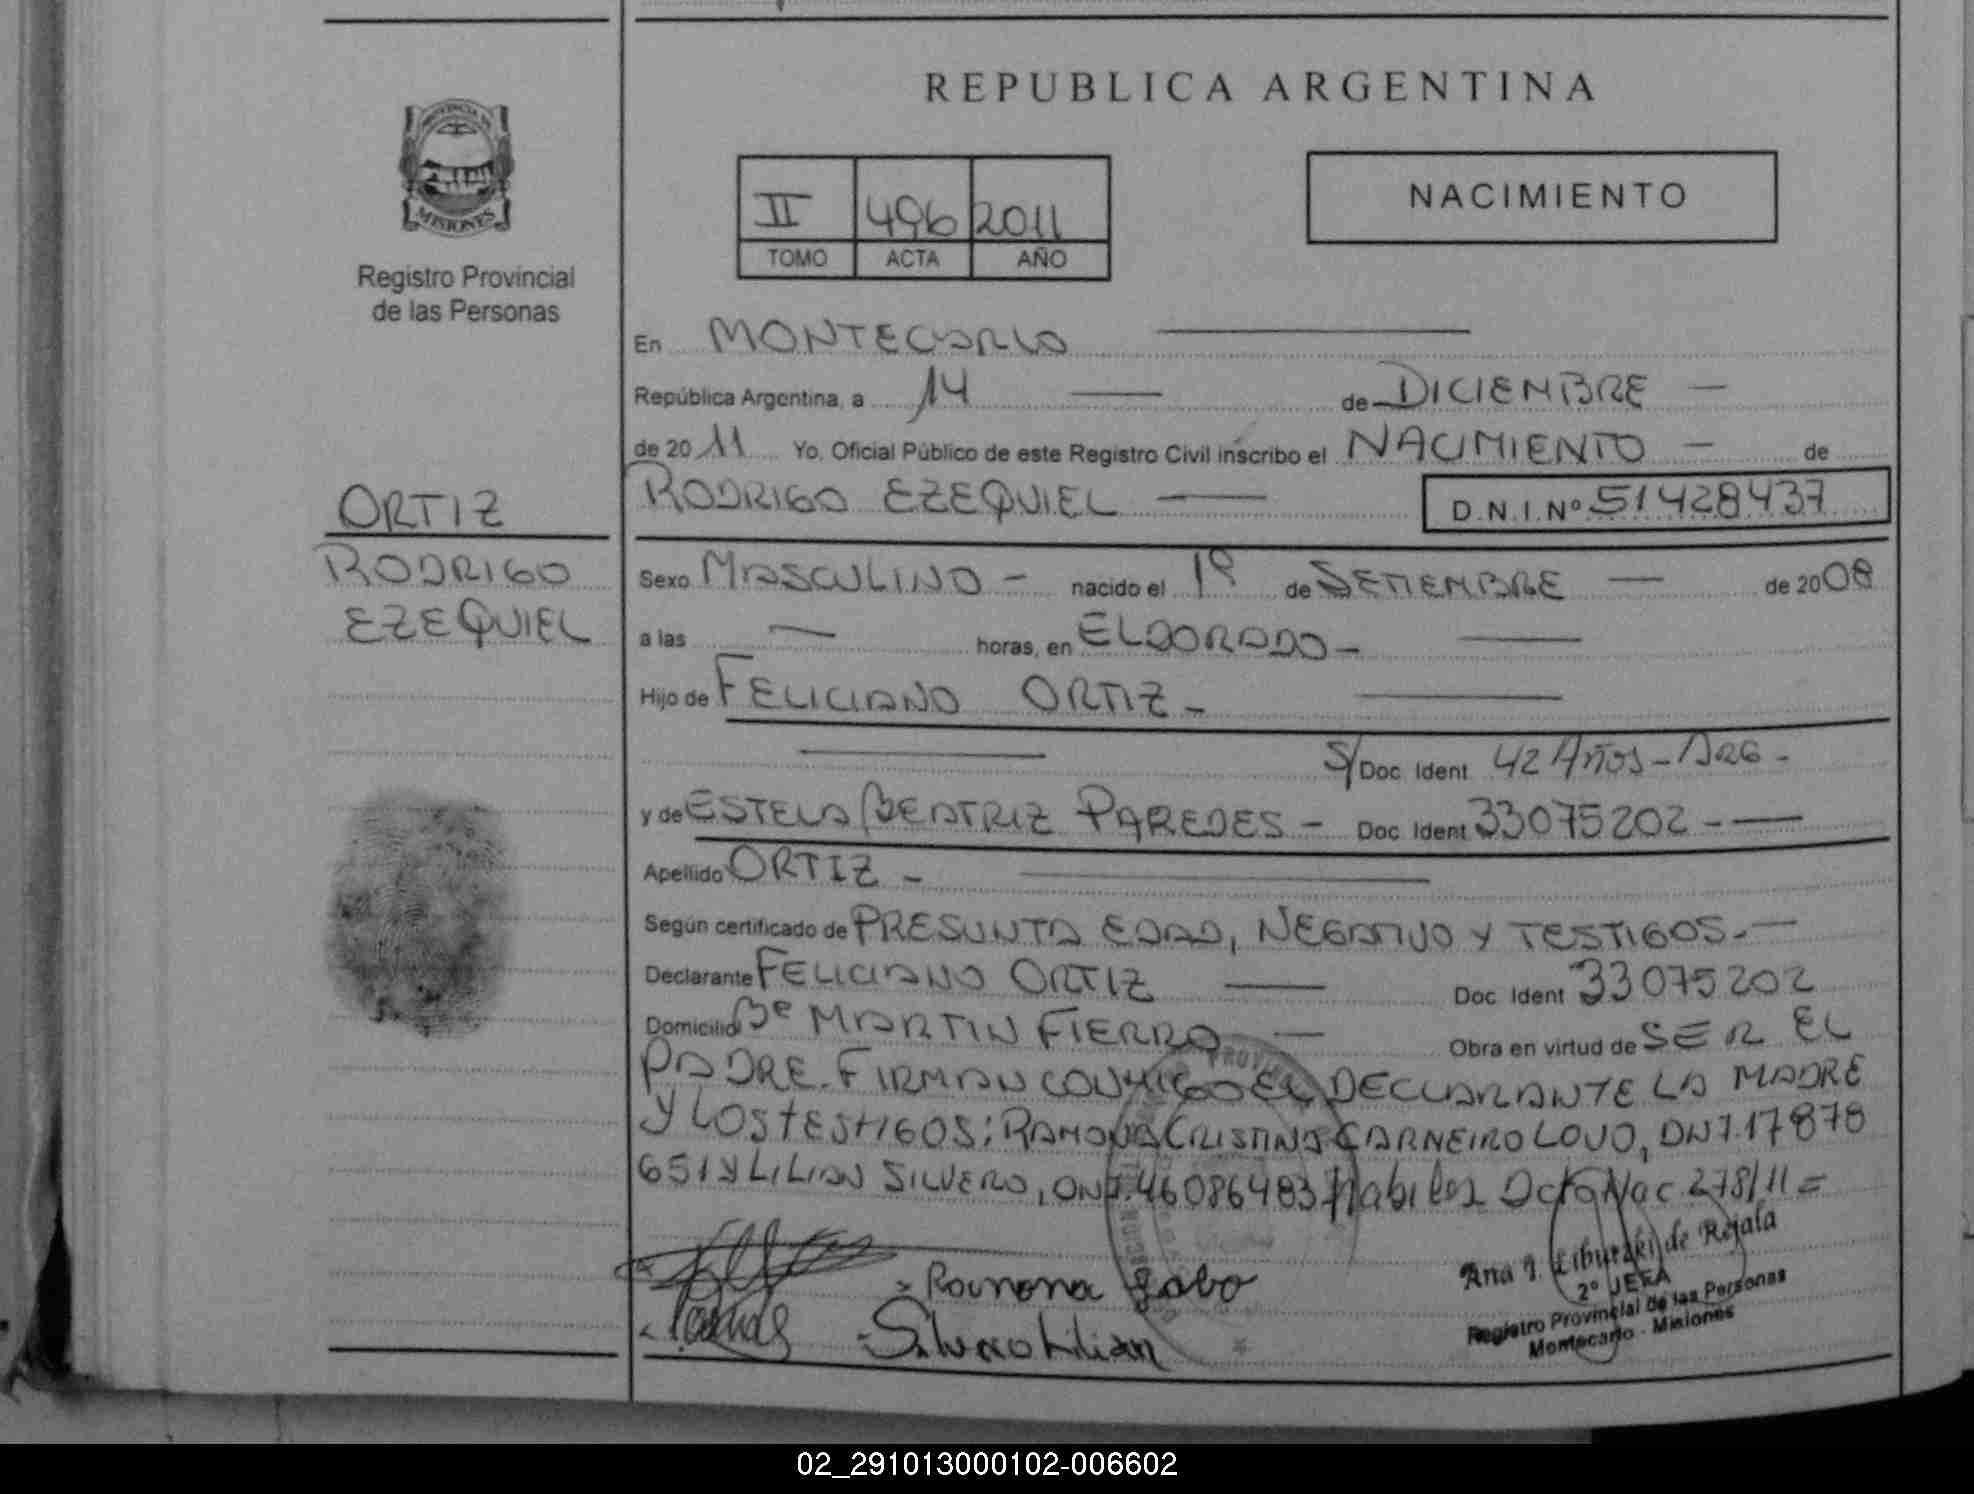 REPUBLICA ARGENTINA
PROVINCIA DE
MISIONES
Registro Provincial
de las Personas
II 496 2011
TOMO ACTA AÑO
NACIMIENTO
En MONTECARLO
República Argentina, a 14 de DICIEMBRE
de 2011 Yo, Oficial Público de este Registro Civil inscribo el NACIMIENTO de
RODRIGO EZEQUIEL D.N.I. Nº 51428437
ORTIZ
RODRIGO
EZEQUIEL
Sexo MASCULINO - nacido el 1º de SETIEMBRE de 2008
a las horas, en ELDORADO -
Hijo de FELICIANO ORTIZ -
S/ Doc. Ident. 42 Años - ARG -
y de ESTELA BEATRIZ PAREDES - Doc. Ident. 33075202 -
Apellido ORTIZ -
Según certificado de PRESUNTA EDAD, NEGATIVO Y TESTIGOS. -
Declarante FELICIANO ORTIZ Doc. Ident. 33075202
Domicilio Bº MARTIN FIERRO Obra en virtud de SER EL
PADRE. FIRMAN CONMIGO EL DECLARANTE LA MADRE
Y LOS TESTIGOS: RAMONA CRISTINA CARNEIRO LOVO, DNI. 17878
651 Y LILIAN SILVERO, DNI. 46086483 habiles Dcto Nac 278/11 =
Ramona
Silvero Lilian
Ana I. de Rejala
2º JEFA
Registro Provincial de las Personas
Montecarlo - Misiones
02_291013000102-006602